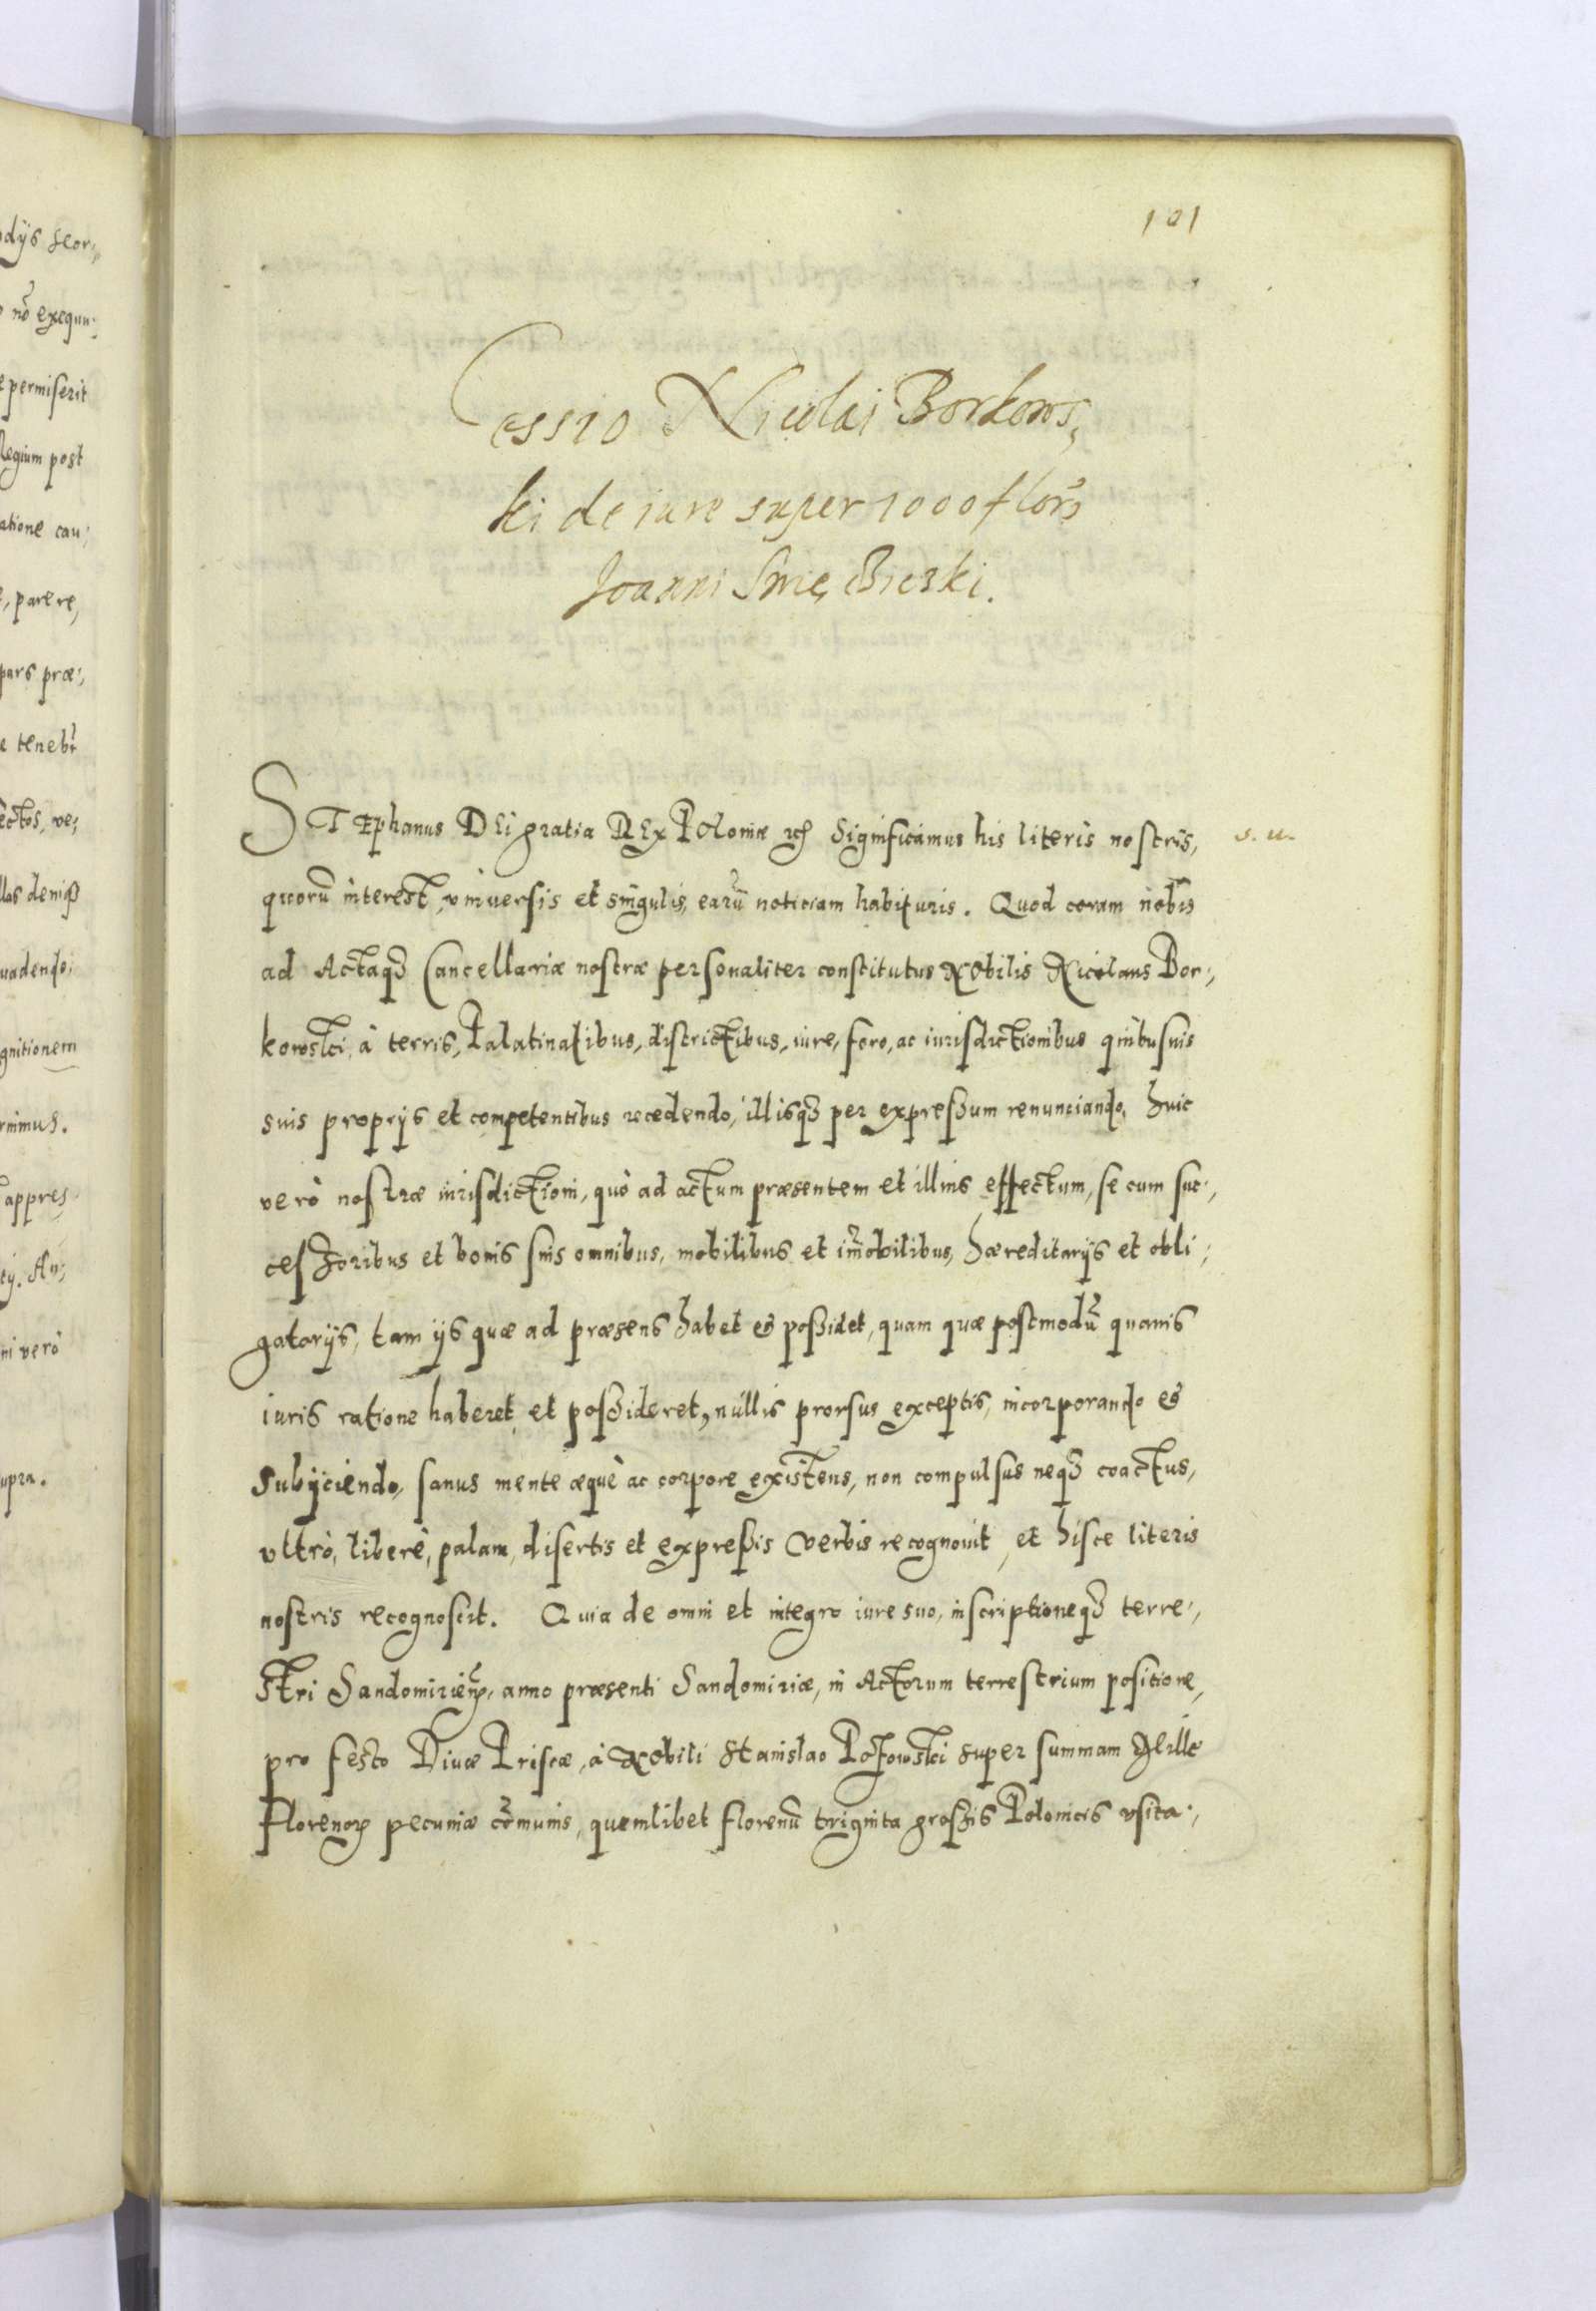 101
Cessio Nicolai Borkows,
ki de iure super 1000 flor̃
Joanni Swięczicski.
STEphanus DEi gratia REx POloniæ etc̃ Significamus his literis nostris,
s. u.
quorũ interest, vniuersis et singulis, earũ noticiam habituris. Quod coram nobis
ad Actaqȝ Cancellariæ nostræ personaliter constitutus Nobilis Nicolaus Bor,
kowski, à terris, Palatinatibus, districtibus, iure, foro, ac iurisdictionibus quibusuis
suis proprijs et competentibus recedendo, illisqȝ per expreßum renunciando, huic
verò nostræ iurisdictioni, quò ad actum præsentem et illius effectum, se cum suc,
ceßoribus et bonis suis omnibus, mobilibus et im̃obilibus, hæreditarijs et obli,
gatorijs, tam ijs quæ ad præsens habet et poßidet, quam quæ postmodũ quauis
iuris ratione haberet et poßideret, nullis prorsus exceptis, incorporando et
subijciendo, sanus mente æquè ac corpore existens, non compulsus neqȝ coactus,
vltrò, liberè, palam, disertis et expreßis verbis recognouit, et hisce literis
nostris recognoscit. Quia de omni et integro iure suo, inscriptioneqȝ terre,
stri Sandomirieñ, anno præsenti Sandomiriæ, in Actorum terrestrium positione,
pro festo Diuæ Priscæ, à Nobili Stanislao super summam Mille
Florenoꝝ pecuniæ cõmunis, quemlibet florenũ triginta großis Polonicis vsita,
dijs seor,
nõ exequu,
permiserit
Regium post
atione cau,
parere,
pars præ,
tenebr̃
ectos, ve,
llas deniqȝ
uadendo,
gnitionem
rimus.
appres
tij. An,
ni verò
upra.